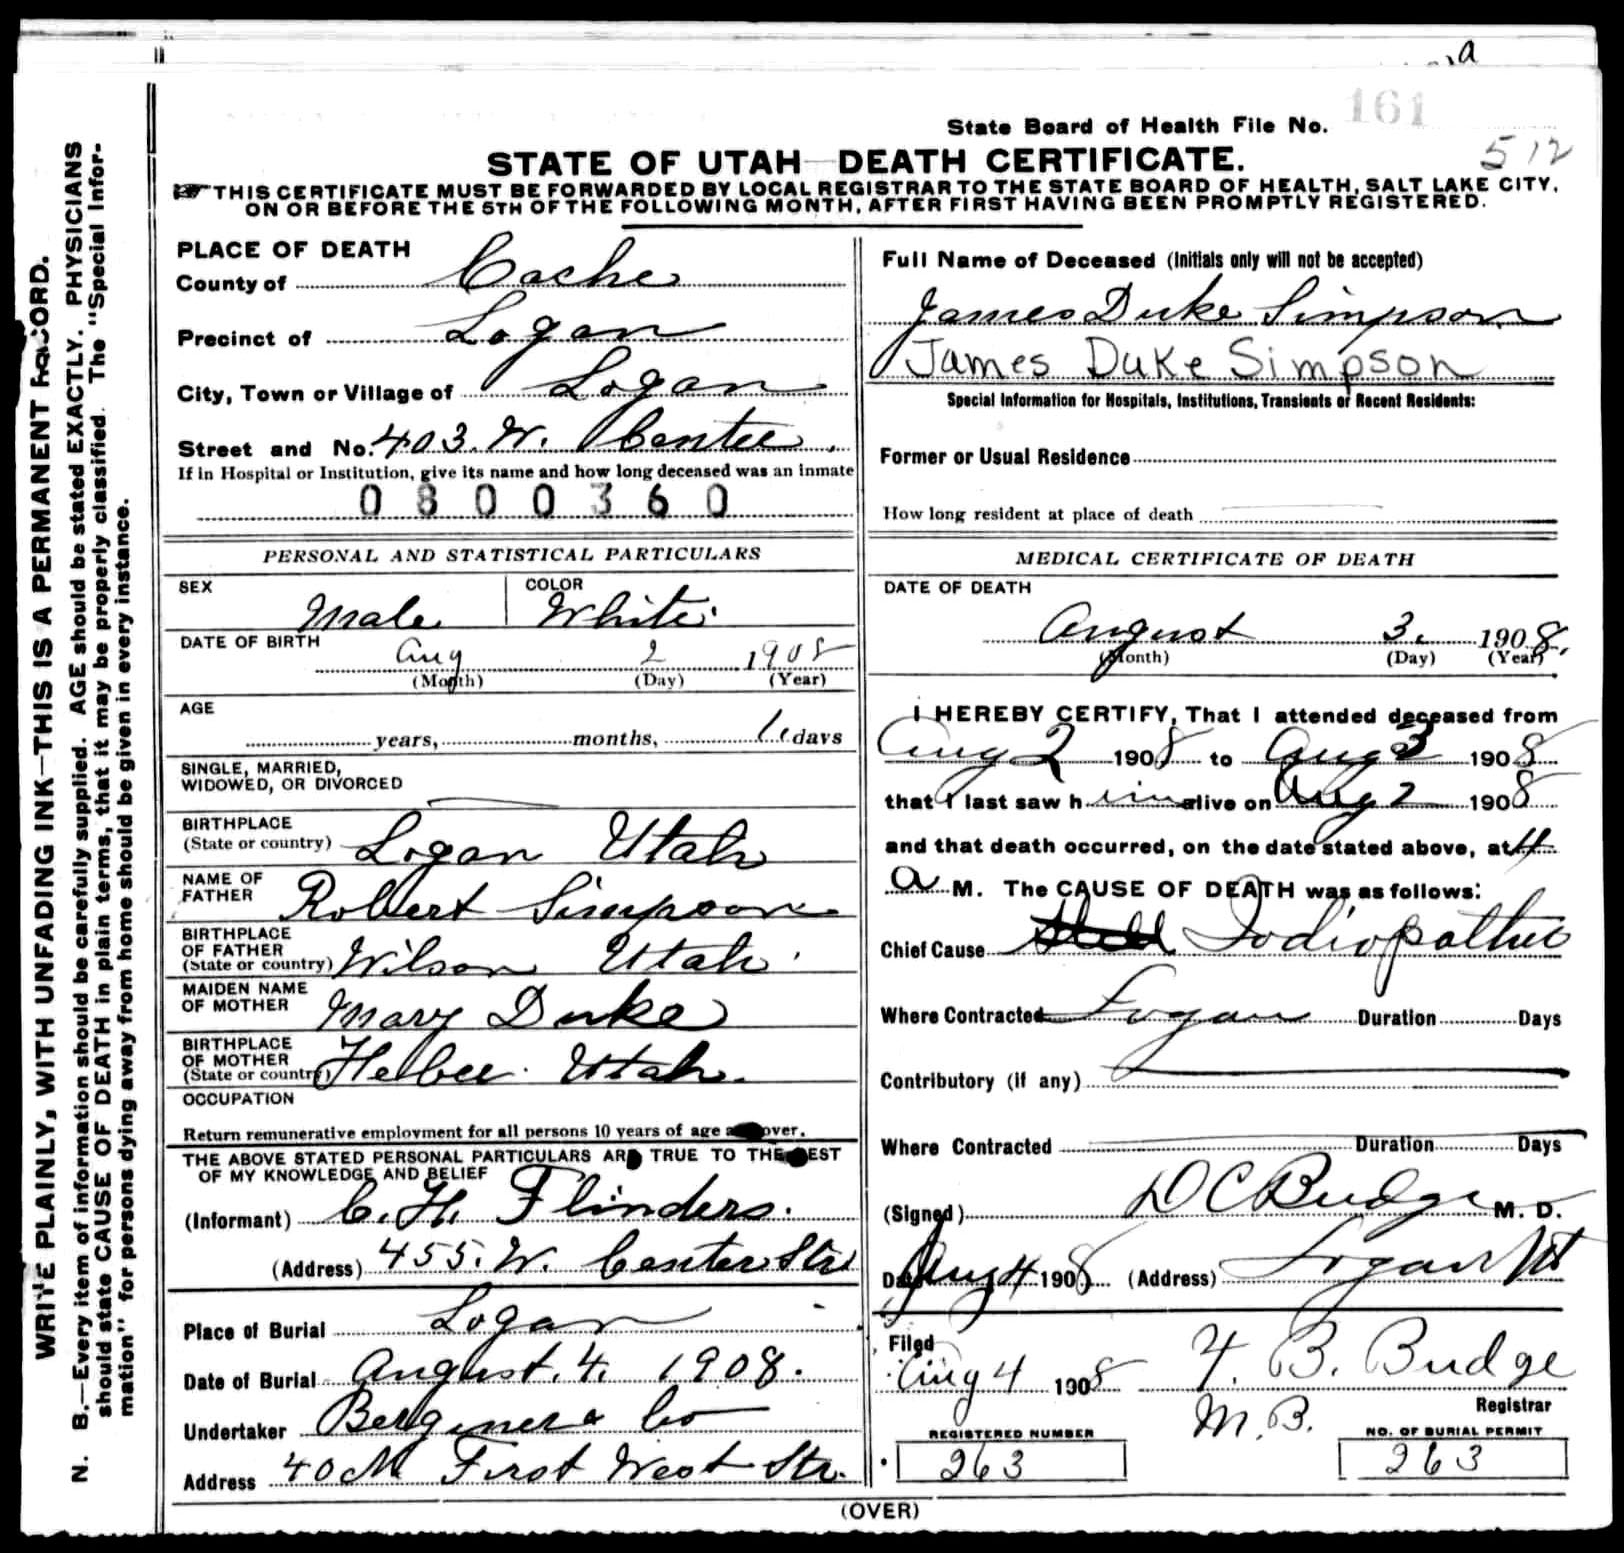 a
State Board of Health File No. 161
512
STATE OF UTAH DEATH CERTIFICATE.
THIS CERTIFICATE MUST BE FORWARDED BY LOCAL REGISTRAR TO THE STATE BOARD OF HEALTH, SALT LAKE CITY,
ON OR BEFORE THE 5TH OF THE FOLLOWING MONTH, AFTER FIRST HAVING BEEN PROMPTLY REGISTERED.
WRITE PLAINLY, WITH UNFADING INK—THIS IS A PERMANENT RECORD.
N. B.—Every item of information should be carefully supplied. AGE should be stated EXACTLY. PHYSICIANS
should state CAUSE OF DEATH in plain terms, that it may be properly classified. The "Special Infor-
mation" for persons dying away from home should be given in every instance.
PLACE OF DEATH
County of Cache
Precinct of Logan
City, Town or Village of Logan
Street and No. 403. W. Center
If in Hospital or Institution, give its name and how long deceased was an inmate
0800360
PERSONAL AND STATISTICAL PARTICULARS
SEX Male COLOR White
DATE OF BIRTH Aug 2 1908
(Month) (Day) (Year)
AGE
years, months, days
SINGLE, MARRIED,
WIDOWED, OR DIVORCED
BIRTHPLACE
(State or country) Logan Utah
NAME OF
FATHER Robert Simpson
BIRTHPLACE
OF FATHER
(State or country) Wilson Utah
MAIDEN NAME
OF MOTHER Mary Duke
BIRTHPLACE
OF MOTHER
(State or country) Heber Utah.
OCCUPATION
Return remunerative employment for all persons 10 years of age over.
THE ABOVE STATED PERSONAL PARTICULARS ARE TRUE TO THE BEST
OF MY KNOWLEDGE AND BELIEF
(Informant) C. H. Flinders.
(Address) 455. W. Center Str
Place of Burial Logan
Date of Burial August. 4. 1908.
Undertaker Co
Address First West Str.
Full Name of Deceased (Initials only will not be accepted)
James Duke Simpson
James Duke Simpson
Special Information for Hospitals, Institutions, Transients or Recent Residents:
Former or Usual Residence
How long resident at place of death
MEDICAL CERTIFICATE OF DEATH
DATE OF DEATH
August 3. 1908.
(Month) (Day) (Year)
I HEREBY CERTIFY, That I attended deceased from
Aug 2 1908 to Aug 3 1908
that I last saw him alive on Aug 2 1908
and that death occurred, on the date stated above, at 4
a M. The CAUSE OF DEATH was as follows:
Chief Cause
Where Contracted Logan Duration Days
Contributory (if any)
Where Contracted Duration Days
(Signed) D C Budge M. D.
Date Aug 4 1908 (Address) Logan Ut
Filed
Aug 4 1908 F. B. Budge
M.B. Registrar
REGISTERED NUMBER NO. OF BURIAL PERMIT
263 263
(OVER)